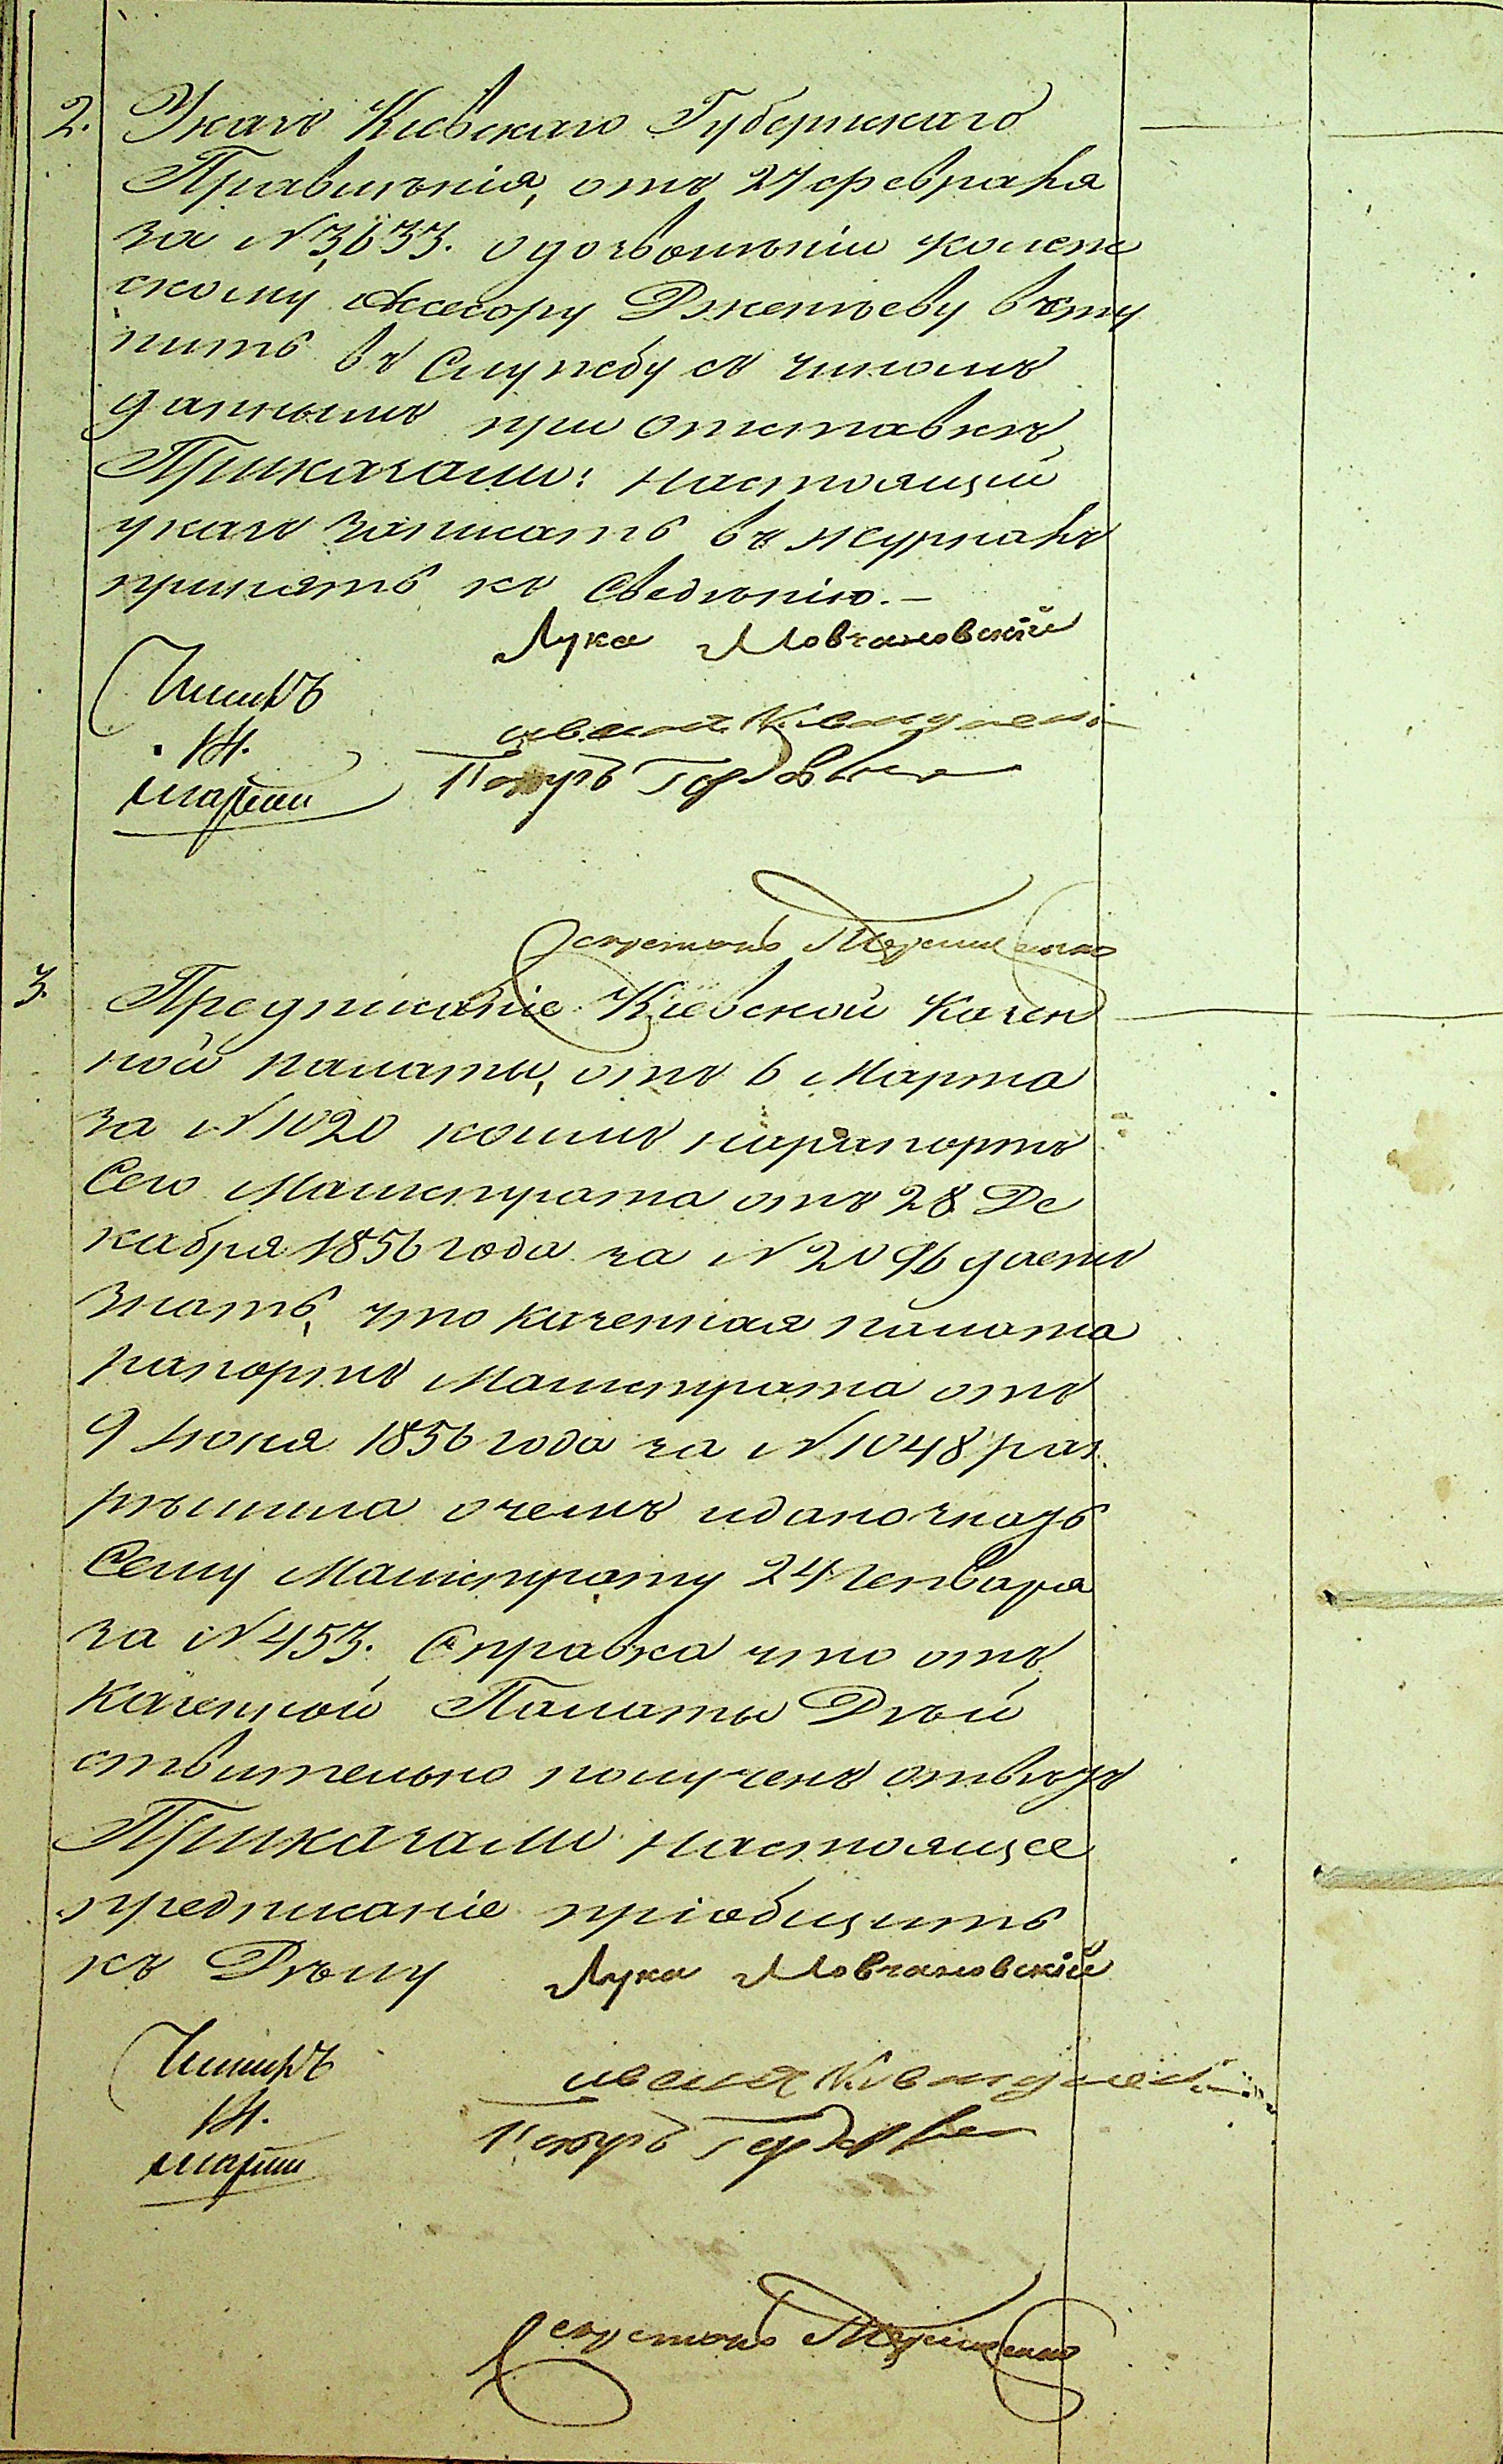 2. Указъ Киевскаго Губернскаго
Правленія, отъ 27 февраля
за №3,633. о дозволеніи колеж
скому Ассесору Дженѣеву всту
пить въ Службу съ чиномъ
даннымъ при отставкѣ,
Приказали: Настоящій
указъ записать въ журналъ
принять къ Сведѣнію.—
Лука Мовчановскій
Читалъ
14.
марта
Петръ
секретарь Терещенко
3. Предписаніе Кіевской Казен
ной палаты, отъ 6 Марта
за №1020 коимъ на рапортъ
Сего Магистрата отъ 28 Де
кабря 1856 года за №2096 даетъ
знать, что казенная палата
рапортъ Магистрата отъ
9 Июня 1856 года за №1048 раз
рѣшила о чемъ и дано знать
Сему Магистрату 24 Генваря
за №453. Справка что отъ
казенной Палаты Дѣй
ствительно полученъ отвѣтъ
Приказали Настоящее
предписаніе пріобщить
къ Дѣлу Лука Мовчановскій
Читалъ
14.
марта
Петръ
секретарь Терещенко